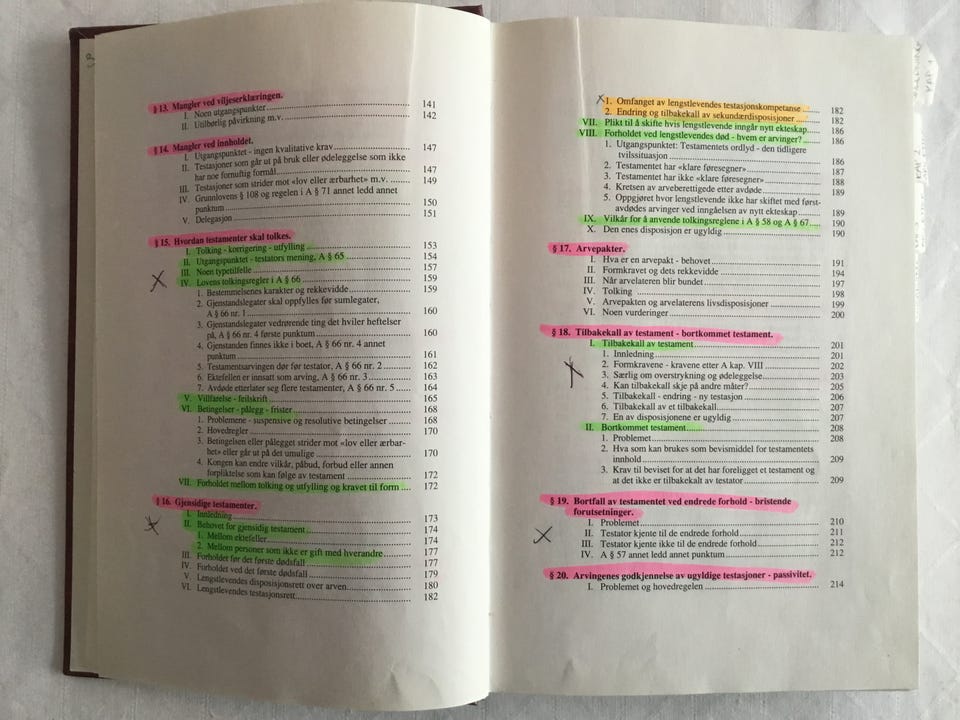 § 13. Mangler ved viljeserklæringen.
I. Noen utgangspunkter 141
II. Utilbørlig påvirkning m.v. 142
§ 14. Mangler ved innholdet.
I. Utgangspunktet - ingen kvalitative krav 147
II. Testasjoner som går ut på bruk eller ødeleggelse som ikke
har noe fornuftig formål 147
III. Testasjoner som strider mot «lov eller ærbarhet» m.v. 149
IV. Grunnlovens § 108 og regelen i A § 71 annet ledd annet
punktum 150
V. Delegasjon 151
§ 15. Hvordan testamenter skal tolkes.
I. Tolking - korrigering - utfylling 153
II. Utgangspunktet - testators mening, A § 65 154
III. Noen typetilfelle 157
IV. Lovens tolkingsregler i A § 66 159
1. Bestemmelsenes karakter og rekkevidde 159
2. Gjenstandslegater skal oppfylles før sumlegater,
A § 66 nr. 1 160
3. Gjenstandslegater vedrørende ting det hviler heftelser
på, A § 66 nr. 4 første punktum 160
4. Gjenstanden finnes ikke i boet, A § 66 nr. 4 annet
punktum 161
5. Testamentsarvingen dør før testator, A § 66 nr. 2 162
6. Ektefellen er innsatt som arving, A § 66 nr. 3 163
7. Avdøde etterlater seg flere testamenter, A § 66 nr. 5 164
V. Villfarelse - feilskrift 165
VI. Betingelser - pålegg - frister 168
1. Problemene - suspensive og resolutive betingelser 168
2. Hovedregler 170
3. Betingelsen eller pålegget strider mot «lov eller ærbar-
het» eller går ut på det umulige 170
4. Kongen kan endre vilkår, påbud, forbud eller annen
forpliktelse som kan følge av testament 172
VII. Forholdet mellom tolking og utfylling og kravet til form 172
§ 16. Gjensidige testamenter.
I. Innledning 173
II. Behovet for gjensidig testament 174
1. Mellom ektefeller 174
2. Mellom personer som ikke er gift med hverandre 177
III. Forholdet før det første dødsfall 177
IV. Forholdet ved det første dødsfall 179
V. Lengstlevendes disposisjonsrett over arven 180
VI. Lengstlevendes testasjonsrett 182
1. Omfanget av lengstlevendes testasjonskompetanse 182
2. Endring og tilbakekall av sekundærdisposisjoner 182
VII. Plikt til å skifte hvis lengstlevende inngår nytt ekteskap 186
VIII. Forholdet ved lengstlevendes død - hvem er arvinger? 186
1. Utgangspunktet: Testamentets ordlyd - den tidligere
tvilssituasjon 186
2. Testamentet har «klare føresegner» 187
3. Testamentet har ikke «klare føresegner» 188
4. Kretsen av arveberettigede etter avdøde 189
5. Oppgjøret hvor lengstlevende ikke har skiftet med først-
avdødes arvinger ved inngåelsen av nytt ekteskap 189
IX. Vilkår for å anvende tolkingsreglene i A § 58 og A § 67 190
X. Den enes disposisjon er ugyldig 190
§ 17. Arvepakter.
I. Hva er en arvepakt - behovet 191
II. Formkravet og dets rekkevidde 194
III. Når arvelateren blir bundet 197
IV. Tolking 198
V. Arvepakten og arvelaterens livsdisposisjoner 199
VI. Noen vurderinger 200
§ 18. Tilbakekall av testament - bortkommet testament.
I. Tilbakekall av testament 201
1. Innledning 201
2. Formkravene - kravene etter A kap. VIII 202
3. Særlig om overstrykning og ødeleggelse 203
4. Kan tilbakekall skje på andre måter? 205
5. Tilbakekall - endring - ny testasjon 206
6. Tilbakekall av et tilbakekall 207
7. En av disposisjonene er ugyldig 207
II. Bortkommet testament 208
1. Problemet 208
2. Hva som kan brukes som bevismiddel for testamentets
innhold 209
3. Krav til beviset for at det har foreligget et testament og
at det ikke er tilbakekalt av testator 209
§ 19. Bortfall av testamentet ved endrede forhold - bristende
forutsetninger.
I. Problemet 210
II. Testator kjente til de endrede forhold 211
III. Testator kjente ikke til de endrede forhold 212
IV. A § 57 annet ledd annet punktum 212
§ 20. Arvingenes godkjennelse av ugyldige testasjoner - passivitet.
I. Problemet og hovedregelen 214